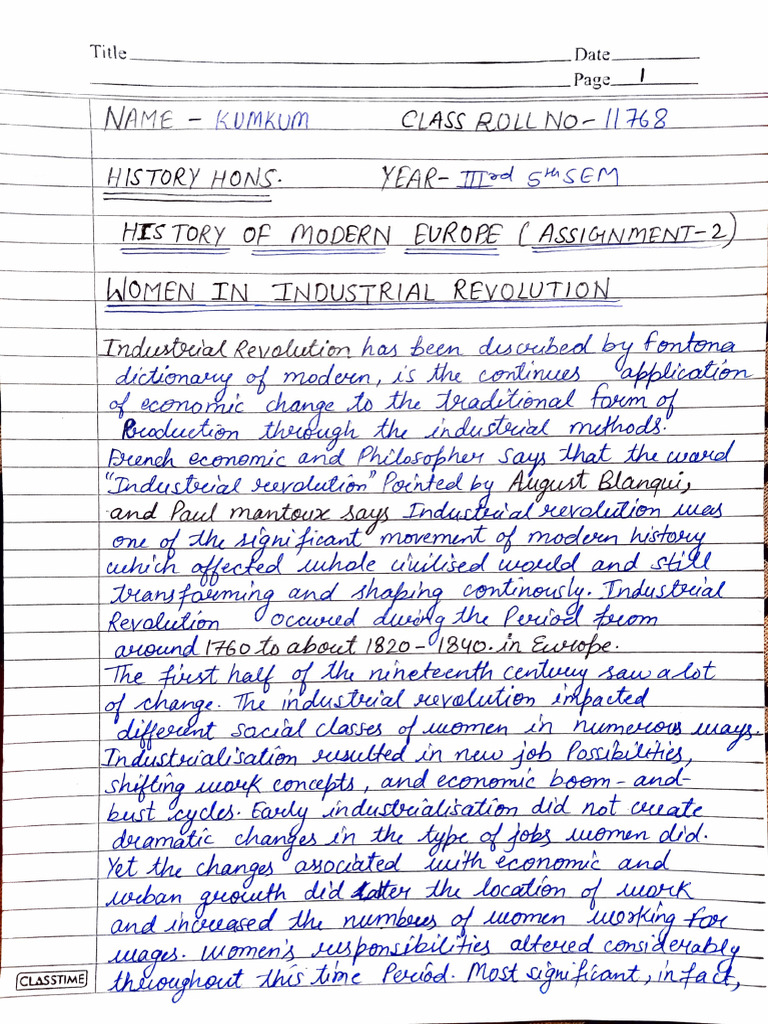 Title
Date
Page 1
NAME - KUMKUM CLASS ROLL NO- 11768
HISTORY HONS. YEAR- IIIrd 5th SEM
HISTORY OF MODERN EUROPE (ASSIGNMENT-2)
WOMEN IN INDUSTRIAL REVOLUTION
Industrial Revolution has been described by fontona
dictionary of modern, is the continues application
of economic change to the traditional form of
Production through the industrial methods.
French economic and Philosopher says that the word
"Industrial reevolution" Pointed by August Blanqui,
and Paul mantoux says Industrial revolution was
one of the significant movement of modern history
which affected whole civilised world and still
transforming and shaping continously. Industrial
Revolution occured during the Period from
around 1760 to about 1820 - 1840. in Europe.
The first half of the nineteenth century saw a lot
of change. The industrial revolution impacted
different social classes of women in numerous ways.
Industrialisation resulted in new job Possibilities,
shifting work concepts, and economic boom - and-
bust cycles. Early industrialisation did not create
dramatic changes in the type of jobs women did.
Yet the changes associated with economic and
urban growth did the location of work
and increased the numbers of women working for
wages. Women's responsibilities altered considerably
throughout this time Period. Most significant, in fact,
CLASSTIME